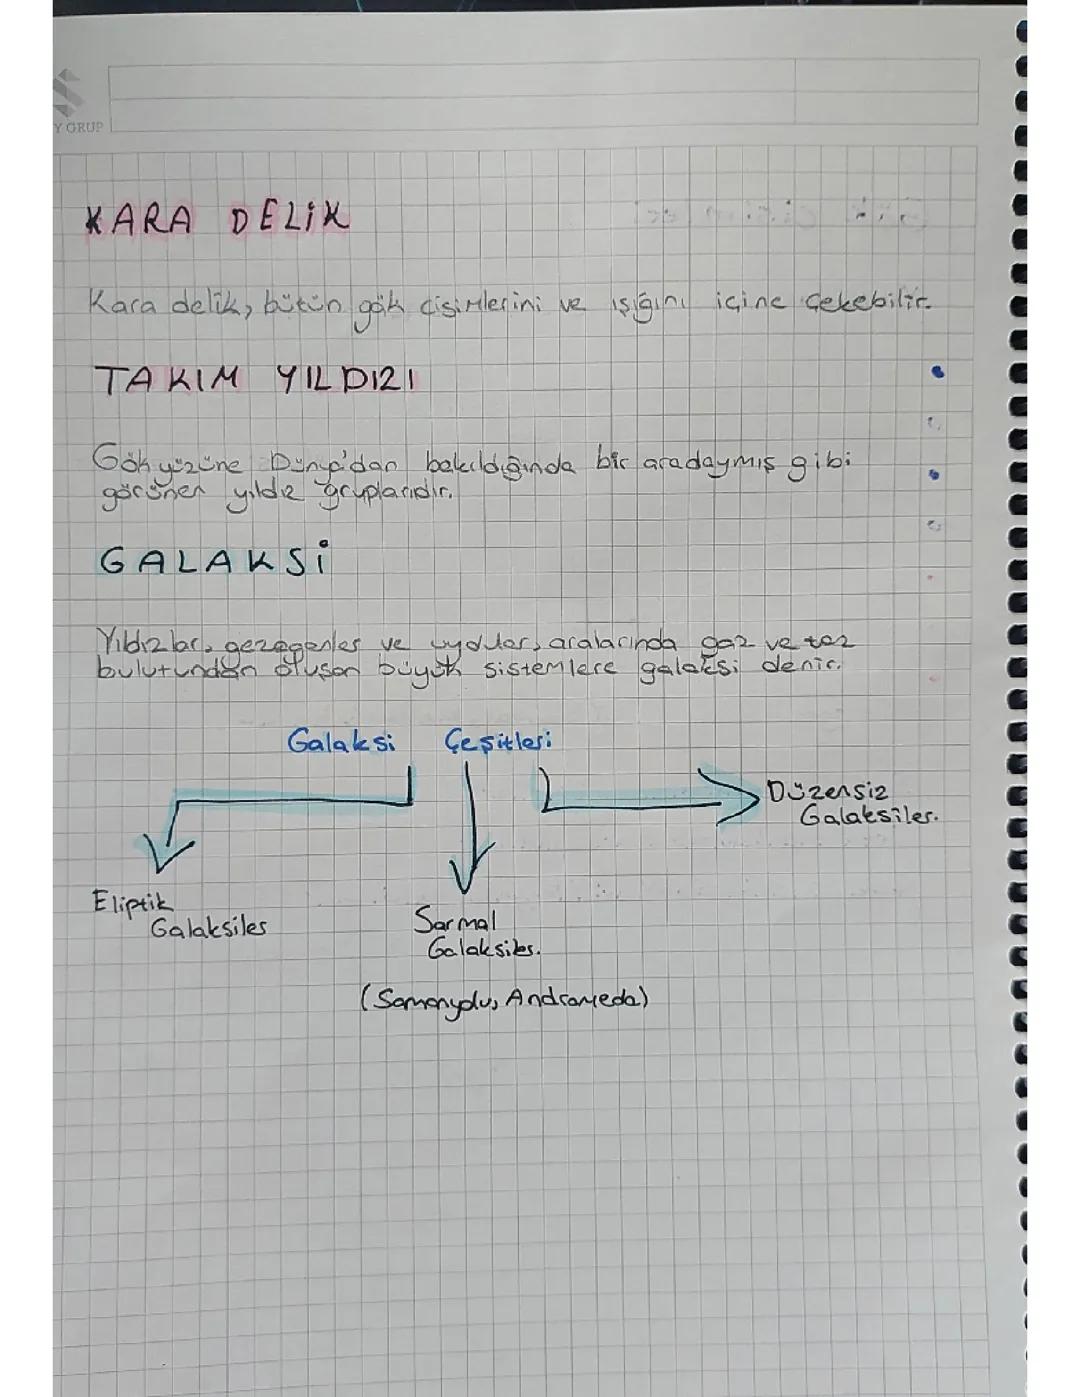 Y GRUP
KARA DELİK
Kara delik, bütün gök cisimlerini ve ışığını içine çekebilir.
TAKIM YILDIZI
Gökyüzüne Dünya'dan bakıldığında bir aradaymış gibi
görünen yıldız gruplarıdır.
GALAKSİ
Yıldızlar, gezegenler ve uydular, aralarında gaz ve toz
bulutundan oluşan büyük sistemlere galaksi denir.
Galaksi Çeşitleri
Düzensiz
Galaksiler.
Eliptik
Galaksiler
Sarmal
Galaksiler.
(Samanyolu, Andromeda)